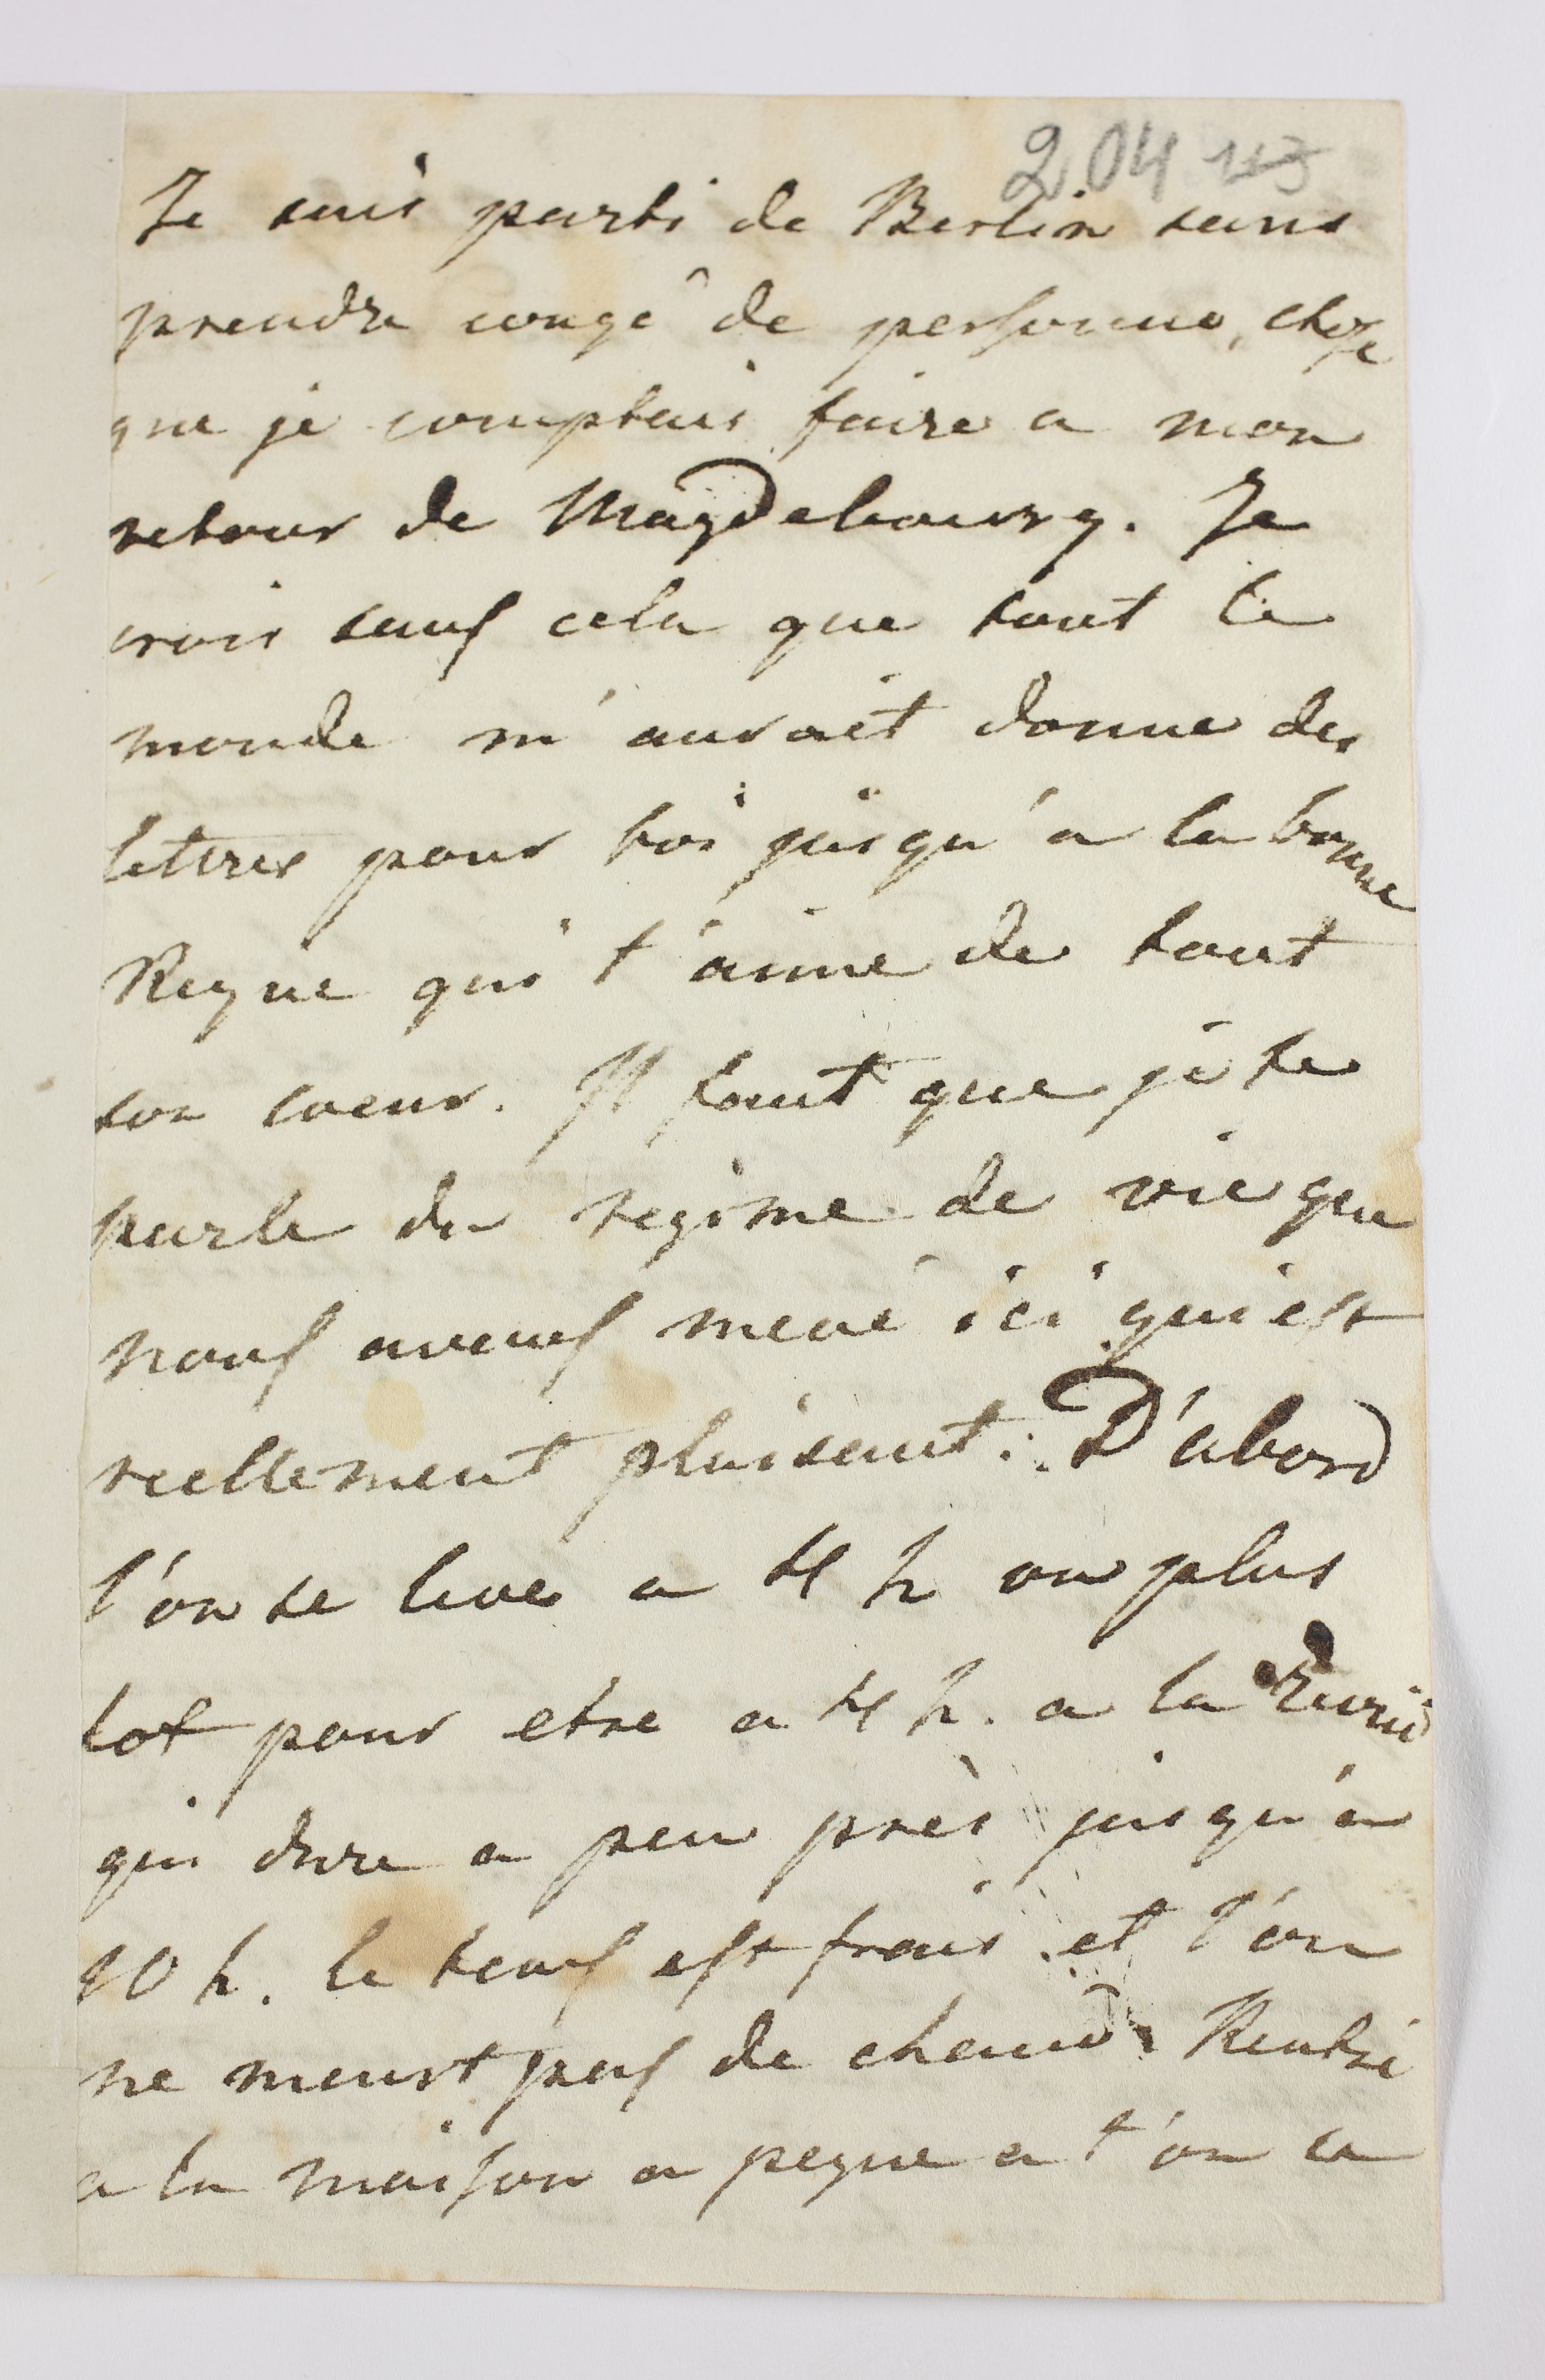 204 113
Je suis parti de Berlin sans
prendre congé de personne, chose
que je comptais faire a mon
retour de Magdebourg. Je
crois sauf cela que tout le
monde m'auroit donne des
lettres pour toi jusqu'a la bonne
Reyne qui t'aime de tout
son coeur. Il faut que je te
parle du regime de vie que
nous avons mené ici qui est
reellement plaisant. D'abord
l'on se leve a 4 h ou plus
tot pour etre a 4 h. a la
qui dure a peu près jusqu'a
10 h. le tems est frais et l'on
ne meurt pas de chaud. Rentré
a la maison a peyne a t'on a